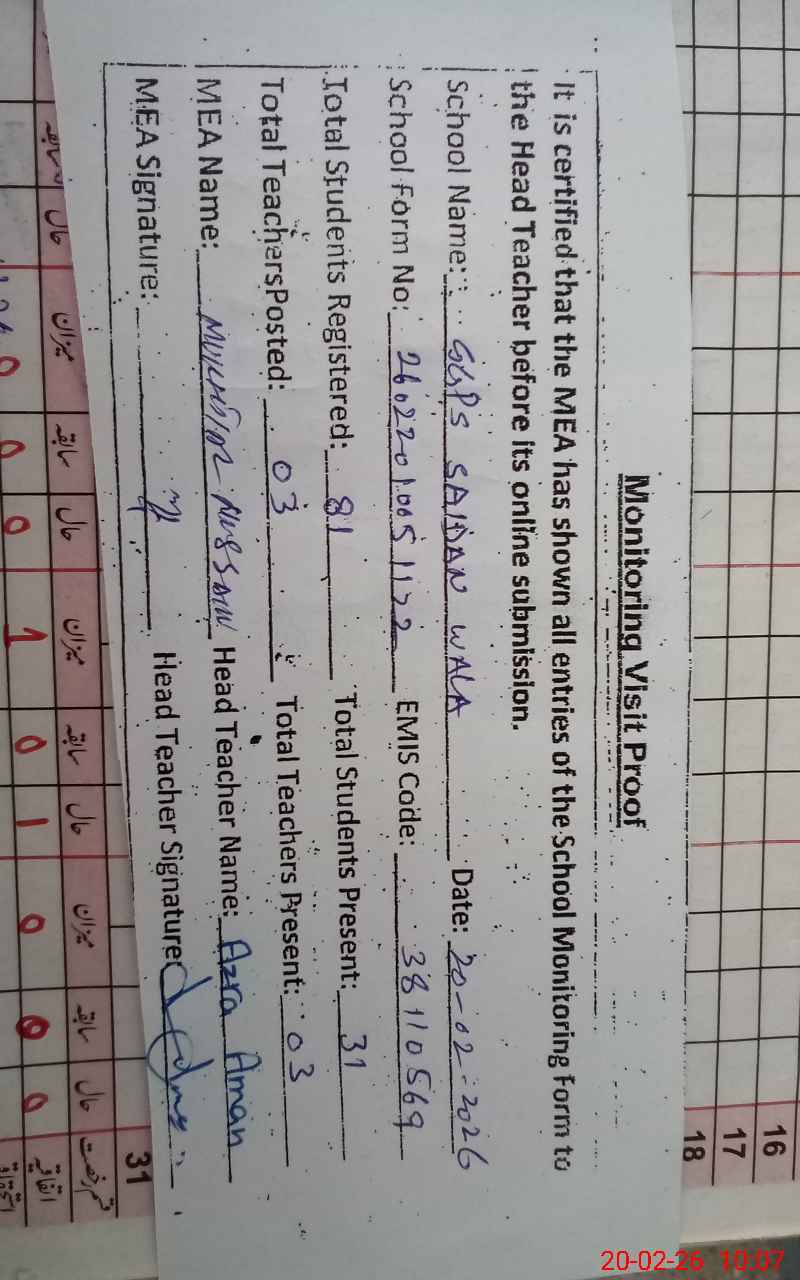 Monitoring Visit Proof
It is certified that the MEA has shown all entries of the School Monitoring Form to
the Head Teacher before its online submission.
School Name: GGPS SAIDAN WALA Date: 20-02-2026
School Form No: 2602201005 1122 EMIS Code: 38110569
Total Students Registered: 81 Total Students Present: 31
Total Teachers Posted: 03 Total Teachers Present: 03
MEA Name: Head Teacher Name: Azra Aman
MEA Signature: Head Teacher Signature
16
17
18
31
سابقہ حال میزان سابقہ حال میزان سابقہ حال میزان سابقہ حال
0 0 0 1 0 1 0 0 0
اتفاقیہ
20-02-26 10:07